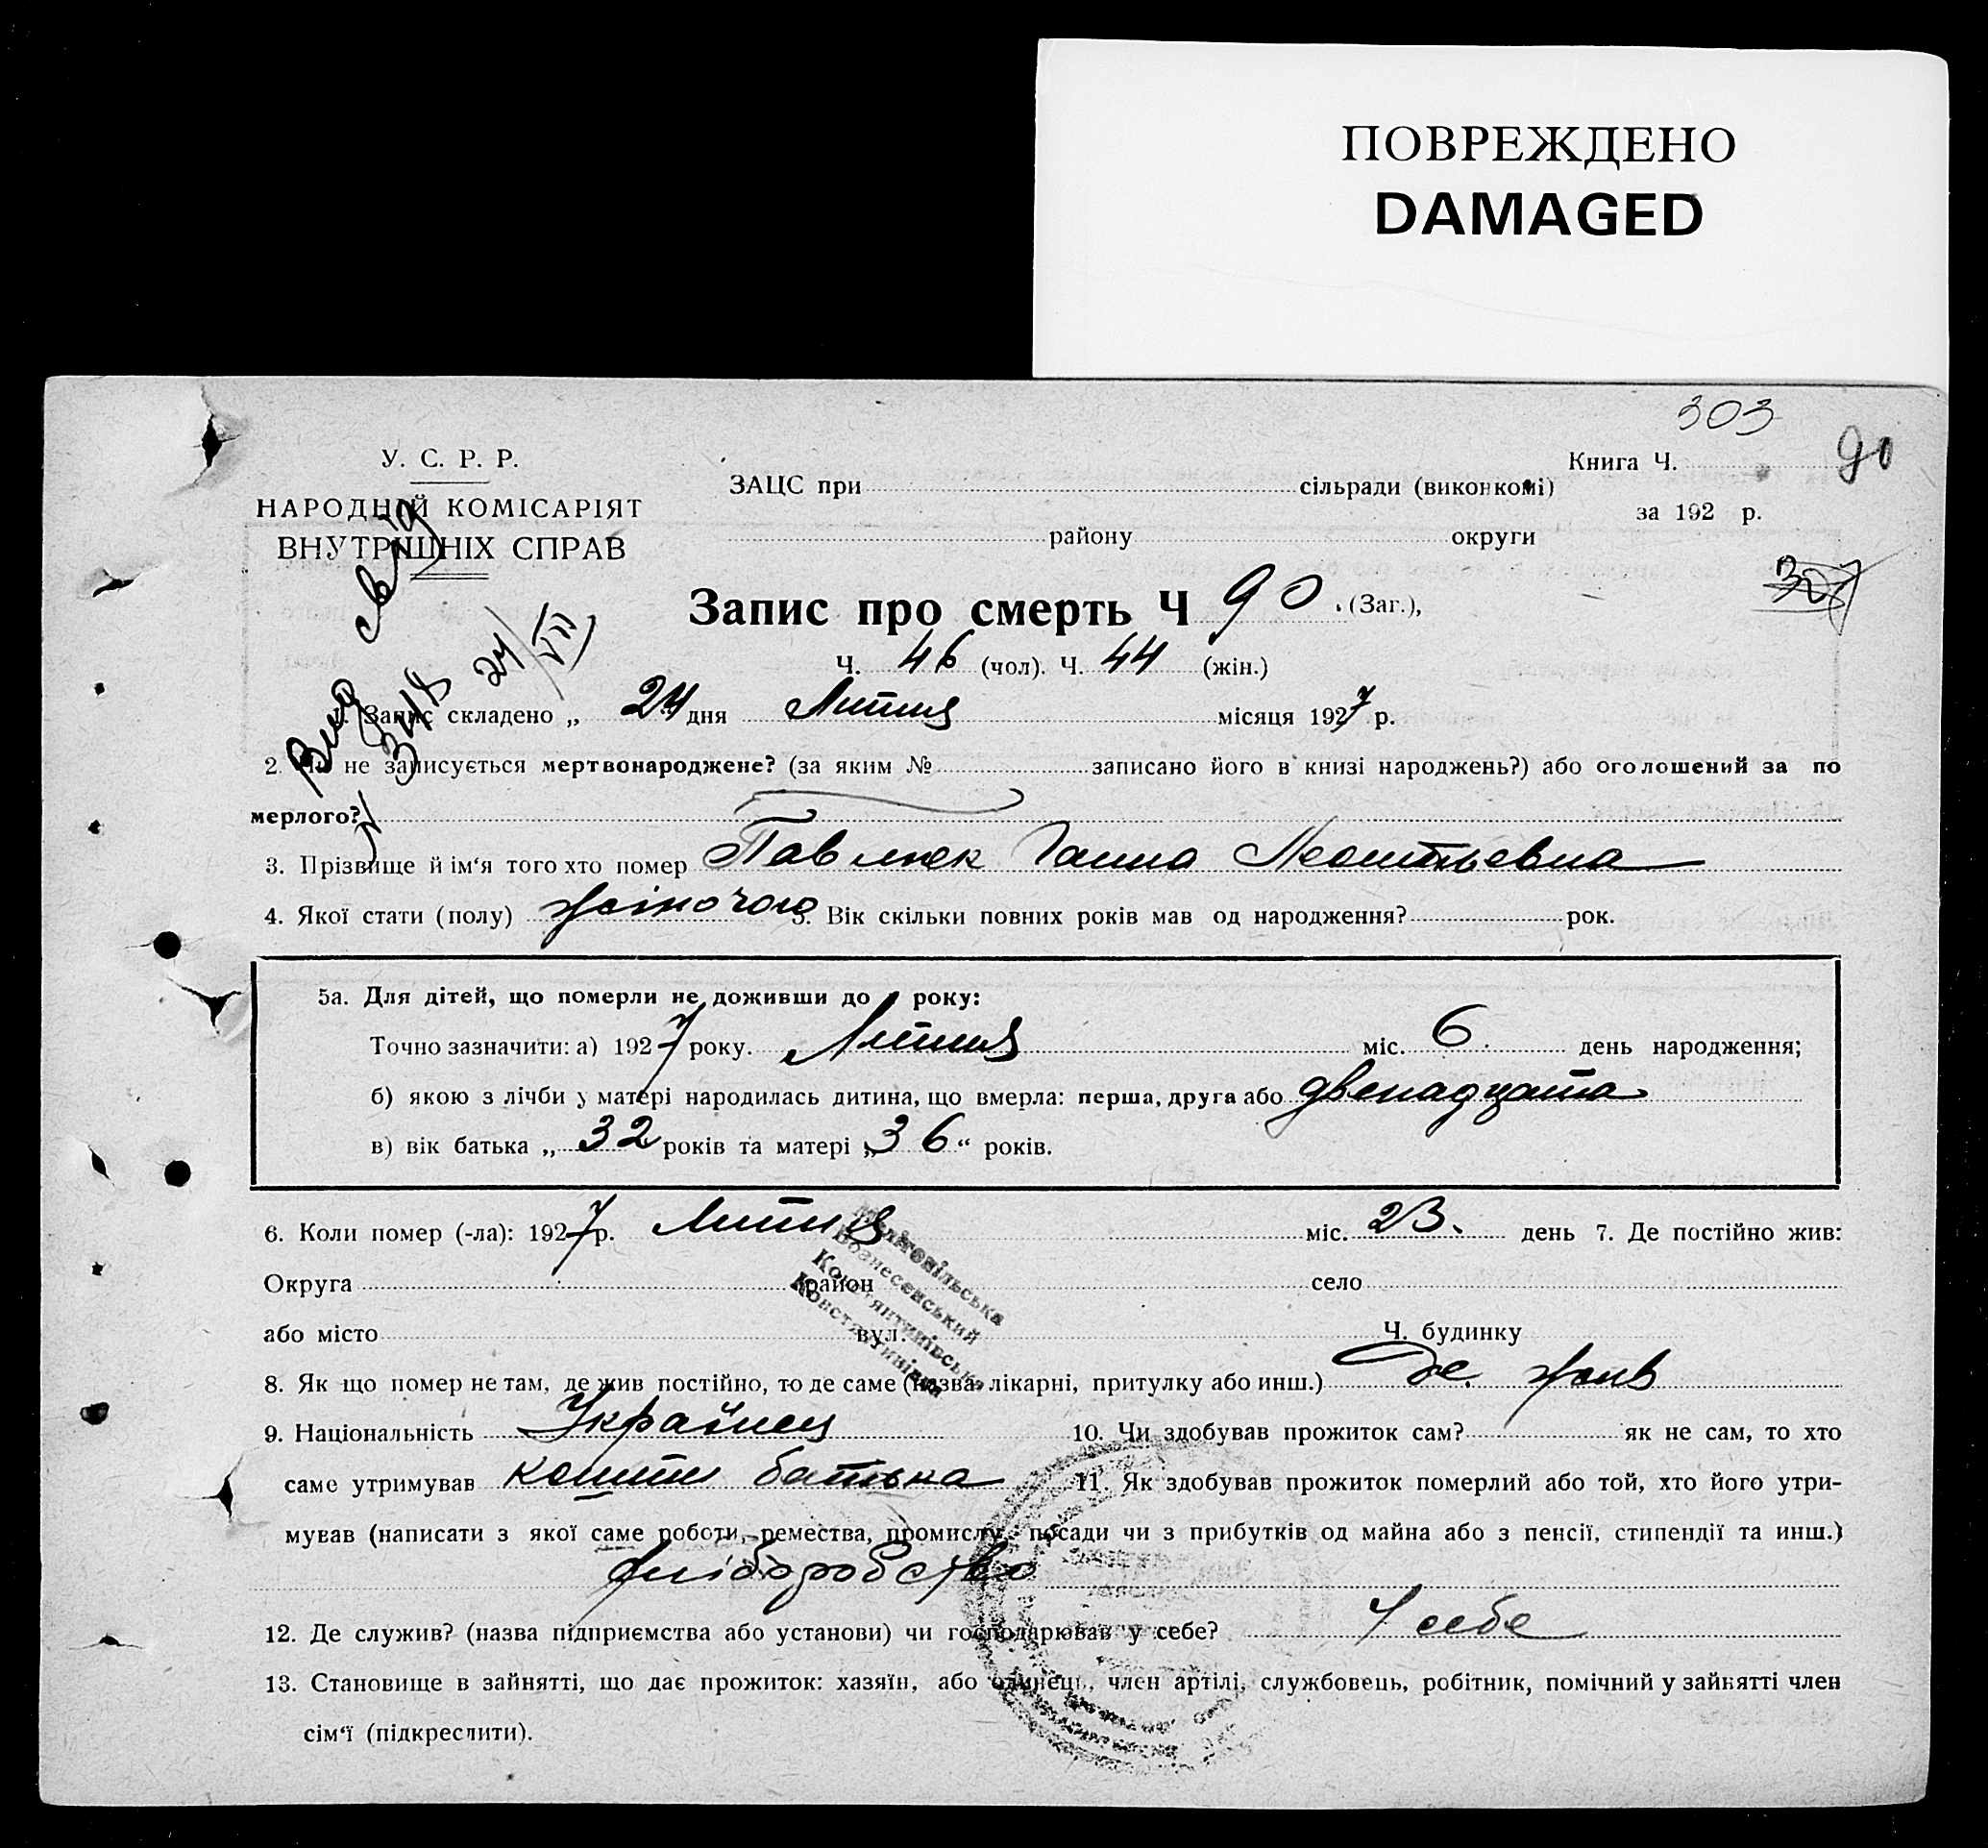 ПОВРЕЖДЕНО
DAMAGED
303
Книга Ч. 90
за 192 р.
307
У. С. Р. Р.
НАРОДНІЙ КОМІСАРІЯТ
ВНУТРІШНІХ СПРАВ
ЗАЦС при сільради (виконкомі)
району округи
Вид. свід
№ 348 24/VII
Запис про смерть Ч 90 (Заг.),
Ч. 46 (чол). Ч. 44 (жін.)
1. Запис складено „ 24 дня Липня місяця 1927 р.
2. Чи не записується мертвонароджене? (за яким № записано його в книзі народжень?) або оголошений за по
мерлого?
3. Прізвище й ім'я того хто помер Павлюк Ганна Леонтьевна
4. Якої стати (полу) жіночого 5. Вік скільки повних років мав од народження? рок.
5а. Для дітей, що померли не доживши до 1 року:
Точно зазначити: а) 1927 року. Липня міс. 6. день народження;
б) якою з лічби у матері народилась дитина, що вмерла: перша, друга або двенадцата
в) вік батька „ 32 років та матері „ 36 “ років.
6. Коли помер (-ла): 1927 р. Липня міс. 23. день 7. Де постійно жив:
Округа район село
або місто вул. Ч. будинку
Мелітопільська
Вознесенський
Костянтинівська
Констянтинівка
8. Як що помер не там, де жив постійно, то де саме (назва лікарні, притулку або инш.) де жив
9. Національність Українец 10. Чи здобував прожиток сам? як не сам, то хто
саме утримував кошти батька 11. Як здобував прожиток померлий або той, хто його утри-
мував (написати з якої саме роботи, ремества, промислу, посади чи з прибутків од майна або з пенсії, стипендії та инш.)
хліборобство
12. Де служив? (назва підприємства або установи) чи господарював у себе? У себе
13. Становище в зайнятті, що дає прожиток: хазяїн, або одинець, член артілі, службовець, робітник, помічний у зайнятті член
сім'ї (підкреслити).